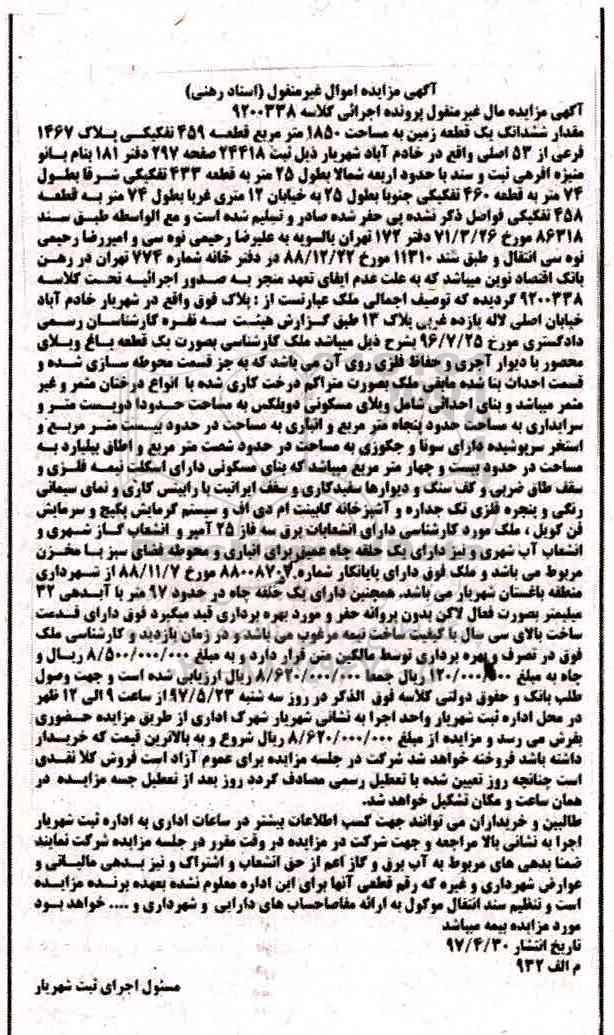 آگهی مزایده اموال غیرمنقول (اسناد رهنی)
آگهی مزایده مال غیرمنقول پرونده اجرائی کلاسه ۹۲۰۰۳۳۸
مقدار ششدانگ یک قطعه زمین به مساحت ۱۸۵۰ متر مربع قطعه ۴۵۹ تفکیکی پلاک ۱۴۶۷
فرعی از ۵۳ اصلی واقع در خادم آباد شهریار ذیل ثبت ۲۴۴۱۸ صفحه ۲۹۷ دفتر ۱۸۱ بنام بانو
منیژه افرهی ثبت و سند با حدود اربعه شمالا بطول ۲۵ متر به قطعه ۴۳۳ تفکیکی شرقا بطول
۷۴ متر به قطعه ۴۶۰ تفکیکی جنوبا بطول ۲۵ به خیابان ۱۲ متری غربا بطول ۷۴ متر به قطعه
۴۵۸ تفکیکی فواصل ذکر نشده پی حفر شده صادر و تسلیم شده است و مع الواسطه طبق سند
۸۶۳۱۸ مورخ ۷۱/۳/۲۶ دفتر ۱۷۲ تهران بالسویه به علیرضا رحیمی نوه سی و امیررضا رحیمی
نوه سی انتقال و طبق سند ۱۱۳۱۰ مورخ ۸۸/۱۲/۲۲ در دفتر خانه شماره ۷۷۴ تهران در رهن
بانک اقتصاد نوین میباشد که به علت عدم ایفای تعهد منجر به صدور اجرائیه تحت کلاسه
۹۲۰۰۳۳۸ گردیده که توصیف اجمالی ملک عبارتست از : پلاک فوق واقع در شهریار خادم آباد
خیابان اصلی لاله یازده غربی پلاک ۱۳ طبق گزارش هیئت سه نفره کارشناسان رسمی
دادگستری مورخ ۹۶/۷/۲۵ بشرح ذیل میباشد ملک کارشناسی بصورت یک قطعه باغ ویلای
محصور با دیوار آجری و حفاظ فلزی روی آن می باشد که به جز قسمت محوطه سازی شده و
قسمت احداث بنا شده مابقی ملک بصورت متراکم درخت کاری شده با انواع درختان مثمر و غیر
مثمر میباشد و بنای احداثی شامل ویلای مسکونی دوبلکس به مساحت حدودا دویست متر و
سرایداری به مساحت حدود پنجاه متر مربع و انباری به مساحت در حدود بیست متر مربع و
استخر سرپوشیده دارای سونا و جکوزی به مساحت در حدود شصت متر مربع و اطاق بیلیارد به
مساحت در حدود بیست و چهار متر مربع میباشد که بنای مسکونی دارای اسکلت نیمه فلزی و
سقف طاق ضربی و کف سنگ و دیوارها سفیدکاری و سقف ایرانیت با رابیتس کاری و نمای سیمانی
رنگی و پنجره فلزی تک جداره و آشپزخانه کابینت ام دی اف و سیستم گرمایش پکیج و سرمایش
فن کویل ، ملک مورد کارشناسی دارای انشعابات برق سه فاز ۲۵ آمپر و انشعاب گاز شهری و
انشعاب آب شهری و نیز دارای یک حلقه چاه عمیق برای انباری و محوطه فضای سبز با مخزن
مربوط می باشد و ملک فوق دارای پایانکار شماره ۸۸۰۰۸۷۰۷ مورخ ۸۸/۱۱/۷ از شهرداری
منطقه باغستان شهریار می باشد. همچنین دارای یک حلقه چاه در حدود ۹۷ متر با آبدهی ۳۲
میلیمتر بصورت فعال لاکن بدون پروانه حفر و مورد بهره برداری قید میگیرد فوق دارای قدمت
ساخت بالای سی سال با کیفیت ساخت نیمه مرغوب می باشد و در زمان بازدید و کارشناسی ملک
فوق در تصرف و بهره برداری توسط مالکین متن قرار دارد و به مبلغ ۸/۵۰۰/۰۰۰/۰۰۰ ریال و
چاه به مبلغ ۱۲۰/۰۰۰/۰۰۰ ریال جمعا ۸/۶۲۰/۰۰۰/۰۰۰ ریال ارزیابی شده است و جهت وصول
طلب بانک و حقوق دولتی کلاسه فوق الذکر در روز سه شنبه ۹۷/۵/۲۳ از ساعت ۹ الی ۱۲ ظهر
در محل اداره ثبت شهریار واحد اجرا به نشانی شهریار شهرک اداری از طریق مزایده حضوری
بفرش می رسد و مزایده از مبلغ ۸/۶۲۰/۰۰۰/۰۰۰ ریال شروع و به بالاترین قیمت که خریدار
داشته باشد فروخته خواهد شد شرکت در جلسه مزایده برای عموم آزاد است فروش کلا نقدی
است چنانچه روز تعیین شده با تعطیل رسمی مصادف گردد روز بعد از تعطیل جسه مزایده در
همان ساعت و مکان تشکیل خواهد شد.
طالبین و خریداران می توانند جهت کسب اطلاعات بیشتر در ساعات اداری به اداره ثبت شهریار
اجرا به نشانی بالا مراجعه و جهت شرکت در مزایده در وقت مقرر در جلسه مزایده شرکت نمایند
ضمنا بدهی های مربوط به آب برق و گاز اعم از حق انشعاب و اشتراک و نیز بدهی مالیاتی و
عوارض شهرداری و غیره که رقم قطعی آنها برای این اداره معلوم نشده بعهده برنده مزایده
است و تنظیم سند انتقال موکول به ارائه مفاصاحساب های دارایی و شهرداری و .... خواهد بود
مورد مزایده بیمه میباشد
تاریخ انتشار ۹۷/۴/۳۰
م الف ۹۳۲
مسئول اجرای ثبت شهریار